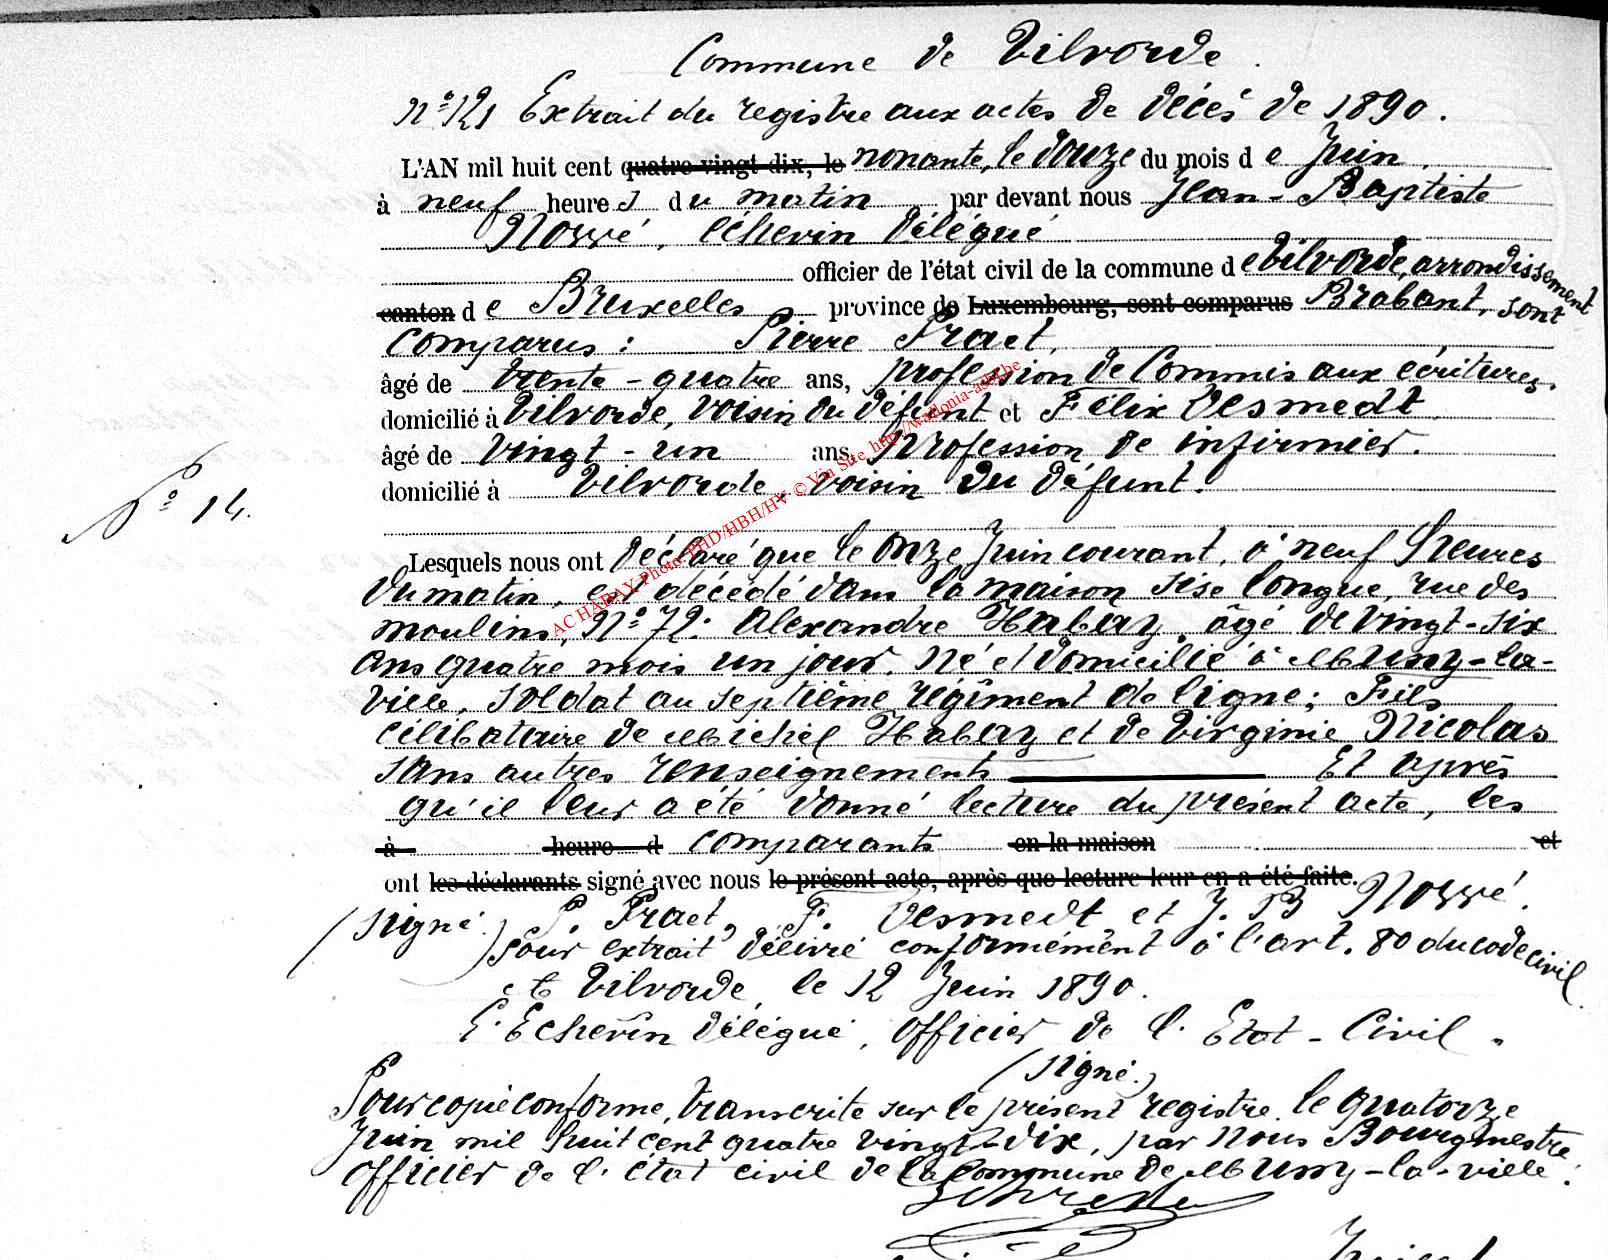 Commune de Vilvorde.
N° 121 Extrait du registre aux actes de décès de 1890.
L'AN mil huit cent quatre-vingt-dix, le nonante, le douze du mois de Juin,
à neuf heures du matin par devant nous Jean-Baptiste
Nowé, échevin délégué
officier de l'état civil de la commune de Vilvorde, arrondissement
canton de Bruxelles, province de Luxembourg, sont comparus Brabant, sont
comparus : Pierre Praet,
âgé de trente-quatre ans, profession de Commis aux écritures,
domicilié à Vilvorde, voisin du défunt et Félix Desmedt
âgé de vingt-un ans, profession de infirmier.
domicilié à Vilvorde voisin du défunt.
N° 14.
Lesquels nous ont déclaré que le onze Juin courant, à neuf heures
du matin, est décédé dans la maison sise longue, rue des
moulins, N° 72: Alexandre Habay, âgé de vingt-six
ans quatre mois un jour. Né et domicilié à Mussy-la-
ville, soldat au septième régiment de ligne; Fils
célibataire de Michel Habay et de Virginie Nicolas
sans autres renseignements Et après
qu'il leur a été donné lecture du présent acte, les
à heure d comparants en la maison et
ont les déclarants signé avec nous le présent acte, après que lecture leur en a été faite.
(signé.) P. Praet, F. Desmedt et J. B Nowé.
pour extrait délivré conformément à l'art. 80 du code civil
Vilvorde, le 12 Juin 1890.
L'Echevin délégué, officier de l'Etat-Civil.
(signé.)
Pour copie conforme, transcrite sur le présent registre, le quatorze
Juin mil huit cent quatre vingt-dix, par nous Bourgmestre,
officier de l'état civil de la commune de Mussy-la-ville.
AC HABAY Photo PHD/HBH/HV © Via Site http://wallonia-asbl.be